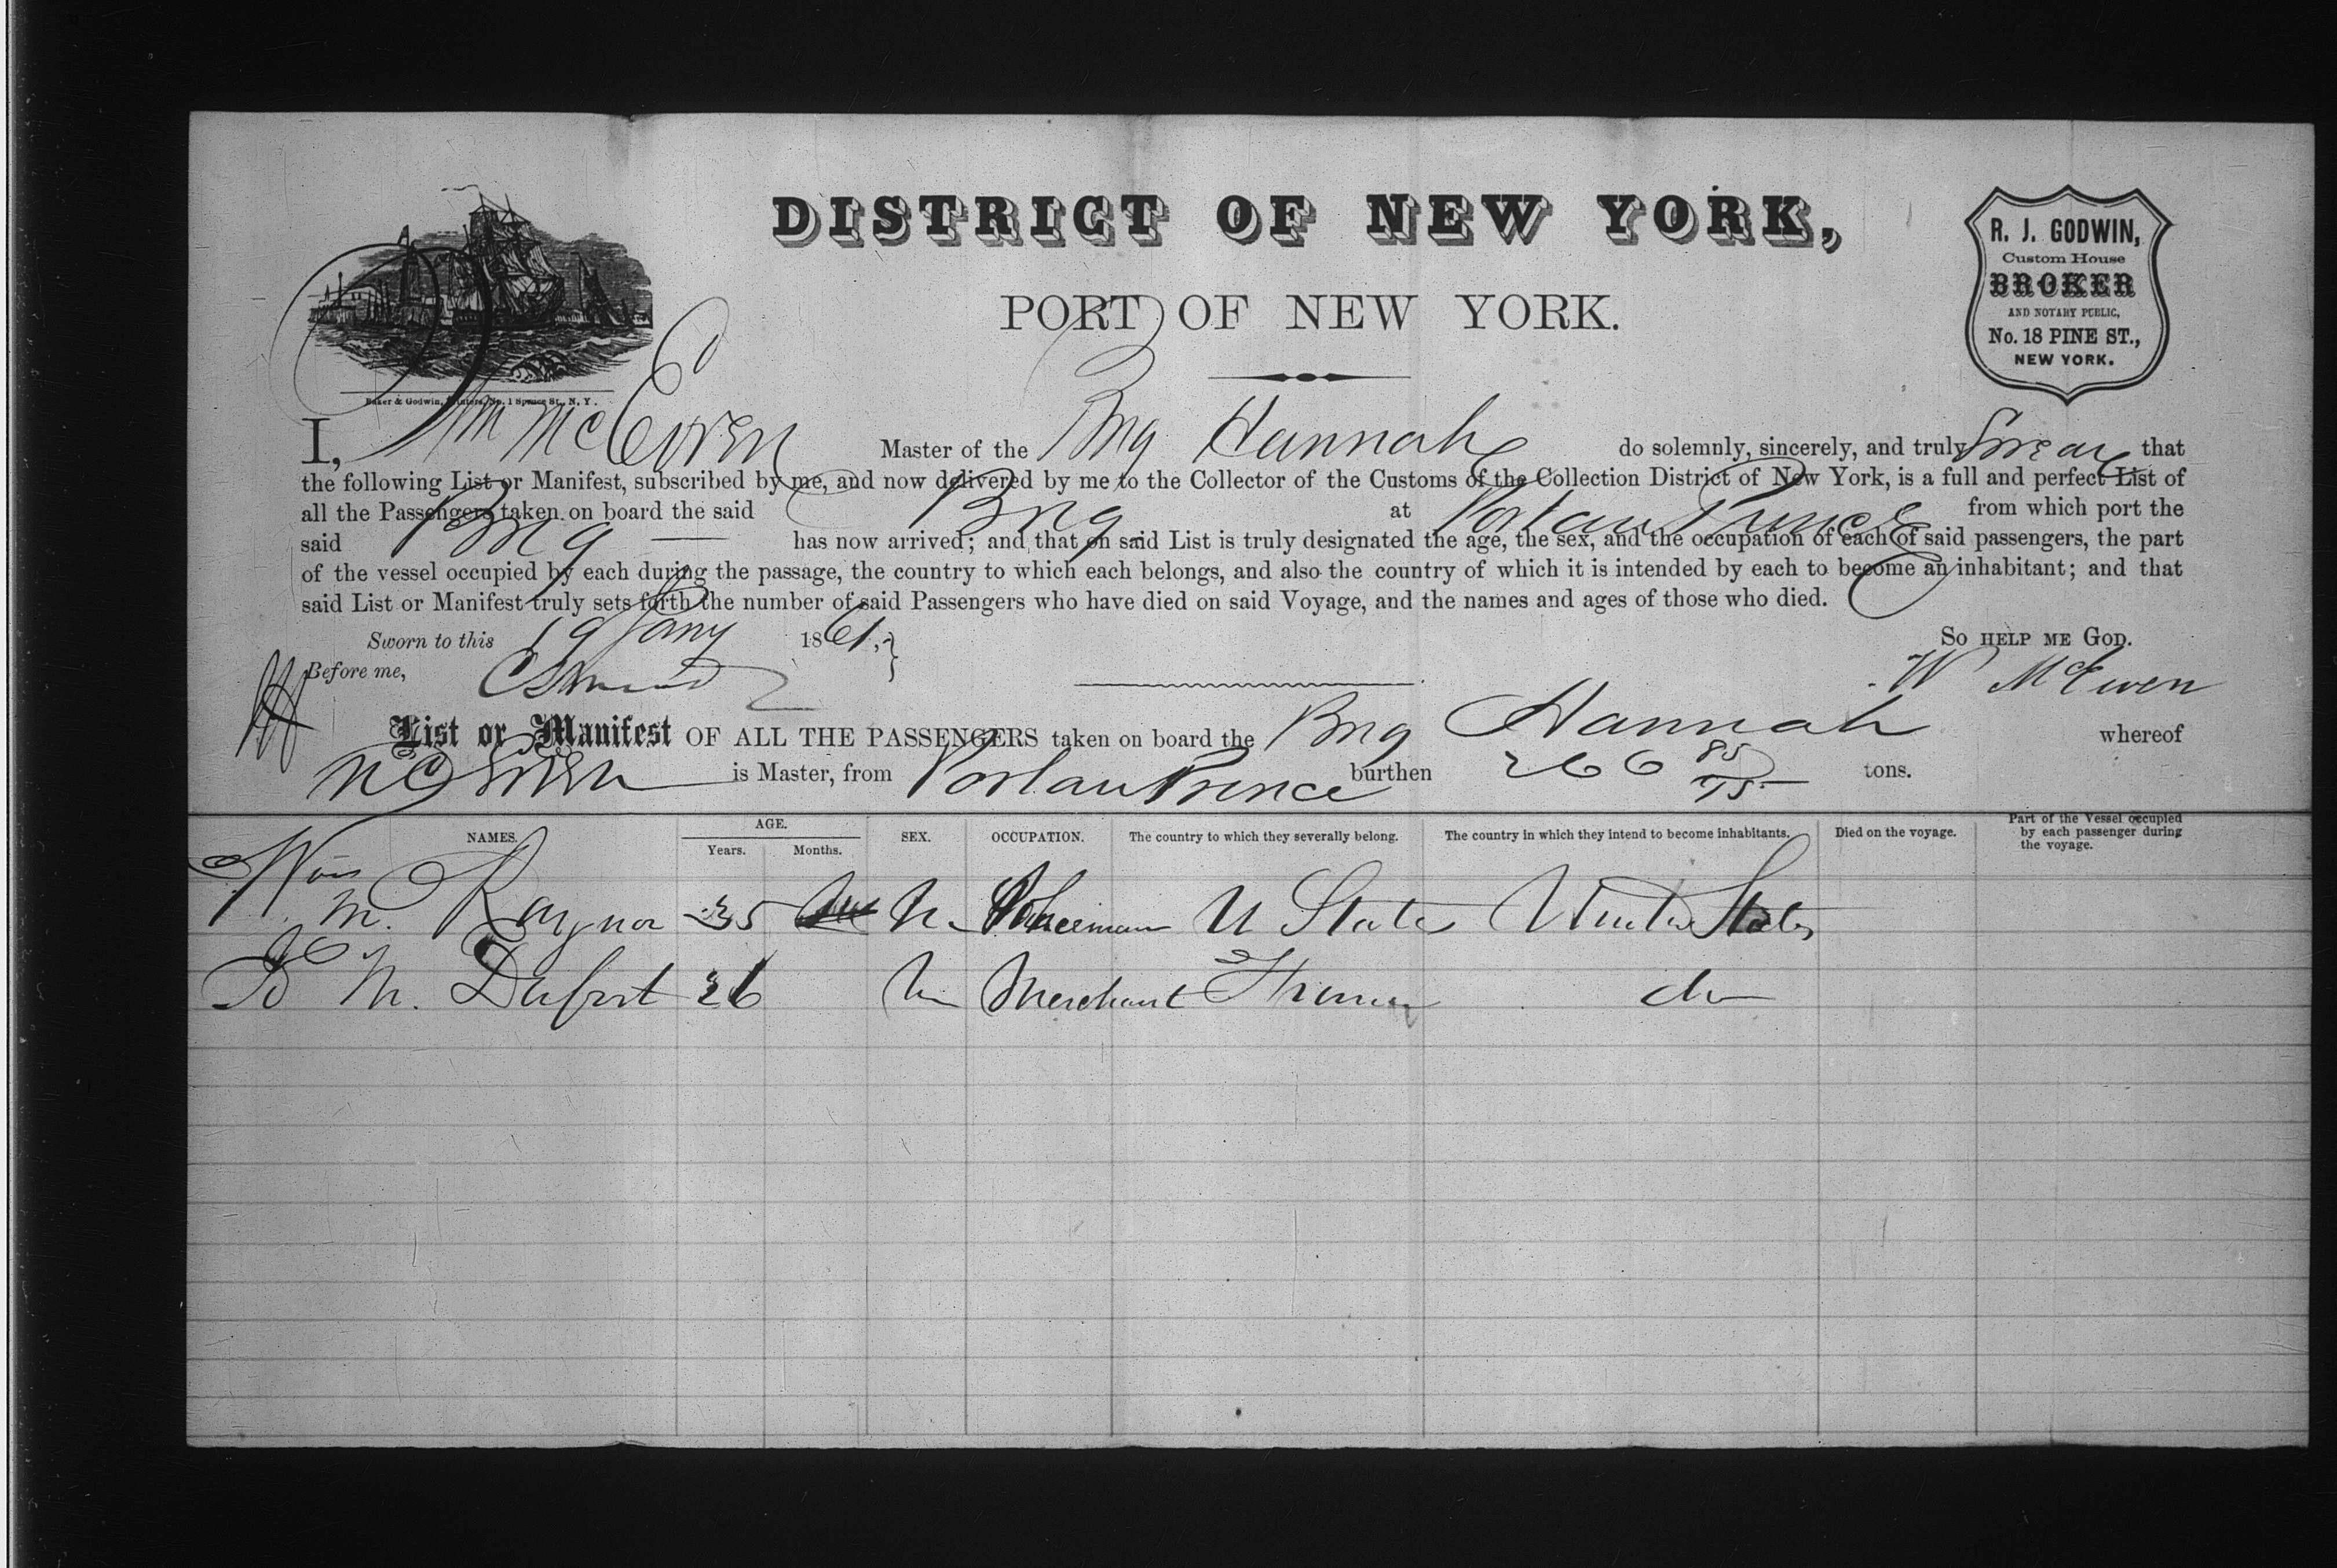 DISTRICT OF NEW YORK,
PORT OF NEW YORK.
R. J. GODWIN,
Custom House
BROKER
AND NOTARY PUBLIC,
No. 18 PINE ST.,
NEW YORK.
Baker & Godwin, Printers, No. 1 Spruce St., N. Y.
I, Wm McEwen Master of the Brig Hannah do solemnly, sincerely, and truly Swear that
the following List or Manifest, subscribed by me, and now delivered by me to the Collector of the Customs of the Collection District of New York, is a full and perfect List of
all the Passengers taken on board the said Brig at Port au Prince from which port the
said Brig has now arrived; and that on said List is truly designated the age, the sex, and the occupation of each of said passengers, the part
of the vessel occupied by each during the passage, the country to which each belongs, and also the country of which it is intended by each to become an inhabitant; and that
said List or Manifest truly sets forth the number of said Passengers who have died on said Voyage, and the names and ages of those who died.
Sworn to this 19 Jany 1861, So HELP ME GOD.
Before me, W McEwen
List or Manifest OF ALL THE PASSENGERS taken on board the Brig Hannah whereof
McEwen is Master, from Port au Prince burthen 266 85/95 tons.
NAMES. AGE. Years. Months. SEX. OCCUPATION. The country to which they severally belong. The country in which they intend to become inhabitants. Died on the voyage. Part of the Vessel occupied by each passenger during the voyage.
Wm M. Raynor 35 M Policeman U States United States
M. Dufort 26 M Merchant do